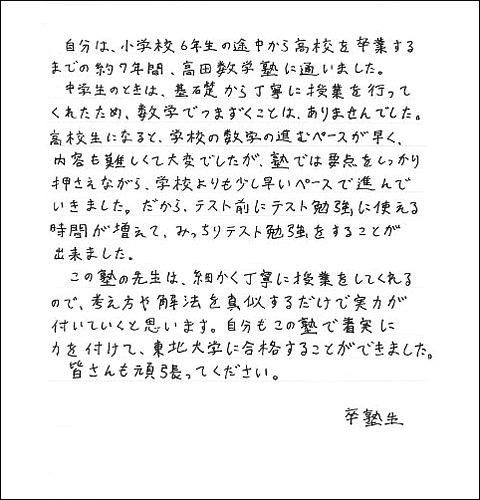 自分は、小学校6年生の途中から高校を卒業する
までの約7年間、高田数学塾に通いました。
中学生のときは、基礎から丁寧に授業を行って
くれたため、数学でつまずくことは、ありませんでした。
高校生になると、学校の数学の進むペースが早く、
内容も難しくて大変でしたが、塾では要点をしっかり
押さえながら、学校よりも少し早いペースで進んで
いきました。だから、テスト前にテスト勉強に使える
時間が増えて、みっちりテスト勉強をすることが
出来ました。
この塾の先生は、細かく丁寧に授業をしてくれる
ので、考え方や解法を真似するだけで実力が
付いていくと思います。自分もこの塾で着実に
力を付けて、東北大学に合格することができました。
皆さんも頑張ってください。
卒塾生